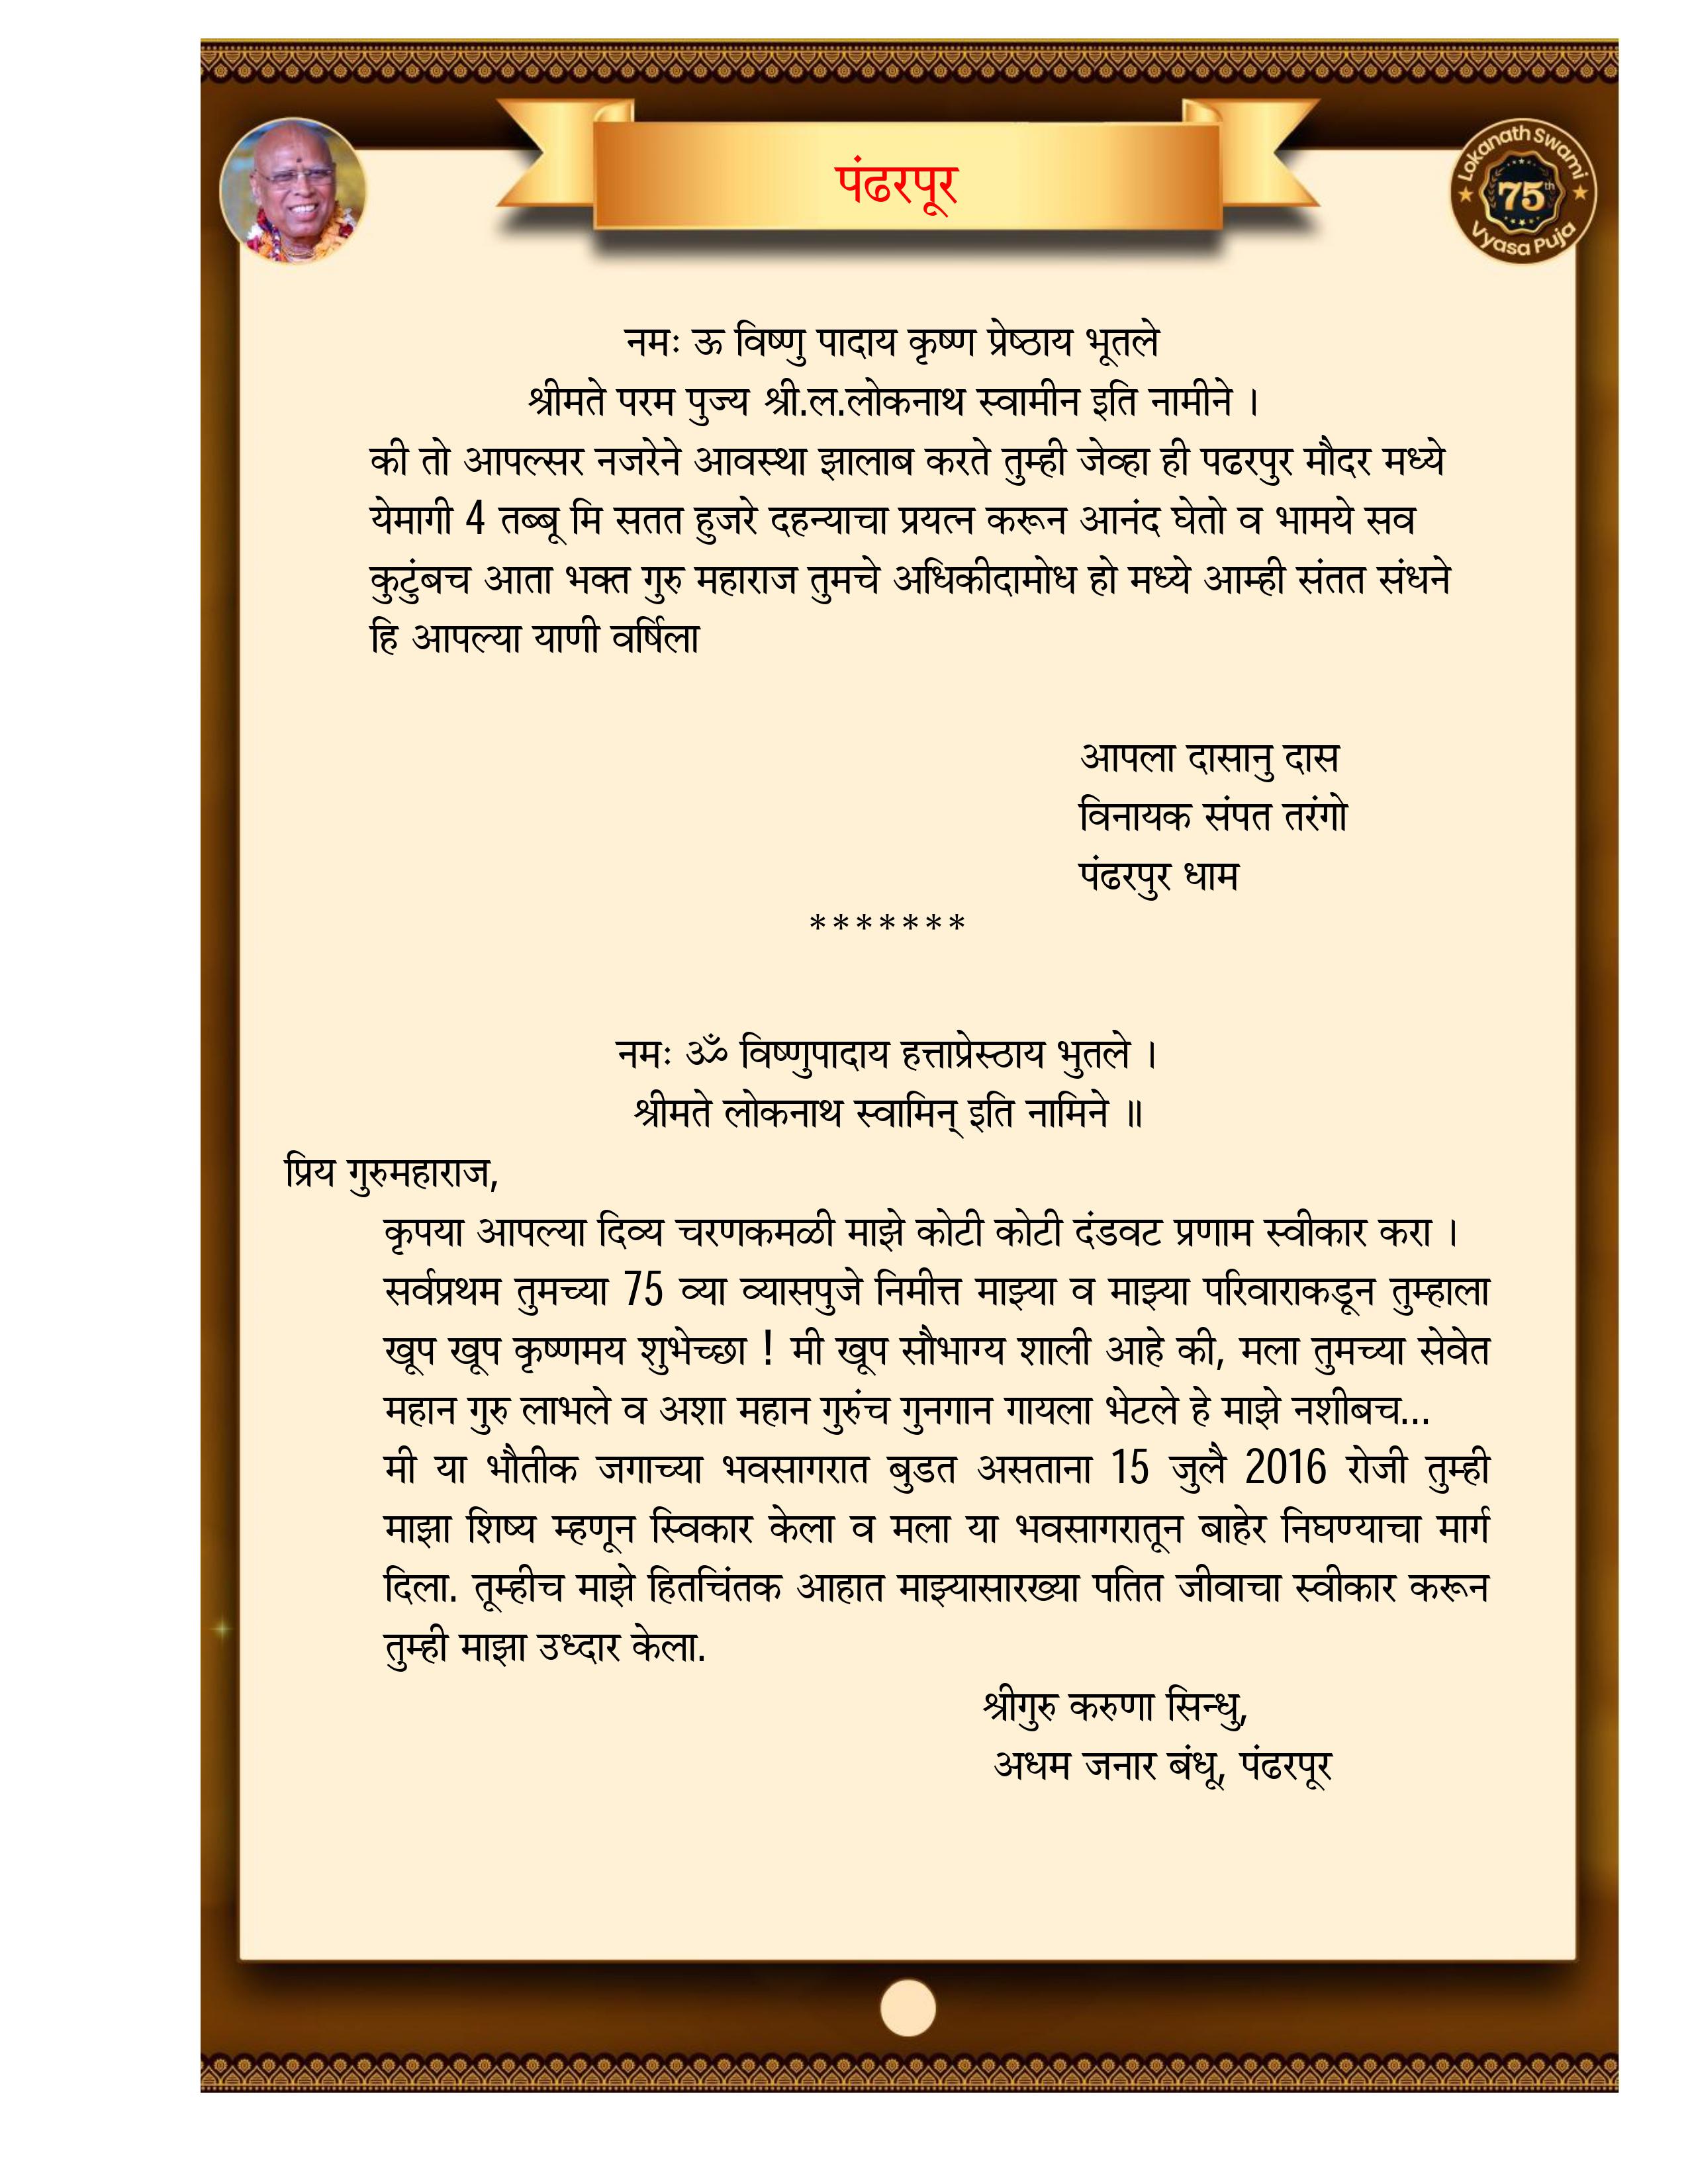 पंढरपूर
Lokanath Swami
75th
Vyasa Puja
नमः ऊ विष्णु पादाय कृष्ण प्रेष्ठाय भूतले
श्रीमते परम पुज्य श्री.ल.लोकनाथ स्वामीन इति नामीने ।
की तो आपल्सर नजरेने आवस्था झालाब करते तुम्ही जेव्हा ही पढरपुर मौदर मध्ये
येमागी 4 तब्बू मि सतत हुजरे दहन्याचा प्रयत्न करून आनंद घेतो व भामये सव
कुटुंबच आता भक्त गुरु महाराज तुमचे अधिकीदामोध हो मध्ये आम्ही संतत संधने
हि आपल्या याणी वर्षिला
आपला दासानु दास
विनायक संपत तरंगो
पंढरपुर धाम
*******
नमः ॐ विष्णुपादाय हत्ताप्रेस्ठाय भुतले ।
श्रीमते लोकनाथ स्वामिन् इति नामिने ॥
प्रिय गुरुमहाराज,
कृपया आपल्या दिव्य चरणकमळी माझे कोटी कोटी दंडवट प्रणाम स्वीकार करा ।
सर्वप्रथम तुमच्या 75 व्या व्यासपुजे निमीत्त माझ्या व माझ्या परिवाराकडून तुम्हाला
खूप खूप कृष्णमय शुभेच्छा ! मी खूप सौभाग्य शाली आहे की, मला तुमच्या सेवेत
महान गुरु लाभले व अशा महान गुरुंच गुनगान गायला भेटले हे माझे नशीबच...
मी या भौतीक जगाच्या भवसागरात बुडत असताना 15 जुलै 2016 रोजी तुम्ही
माझा शिष्य म्हणून स्विकार केला व मला या भवसागरातून बाहेर निघण्याचा मार्ग
दिला. तूम्हीच माझे हितचिंतक आहात माझ्यासारख्या पतित जीवाचा स्वीकार करून
तुम्ही माझा उध्दार केला.
श्रीगुरु करुणा सिन्धु,
अधम जनार बंधू, पंढरपूर